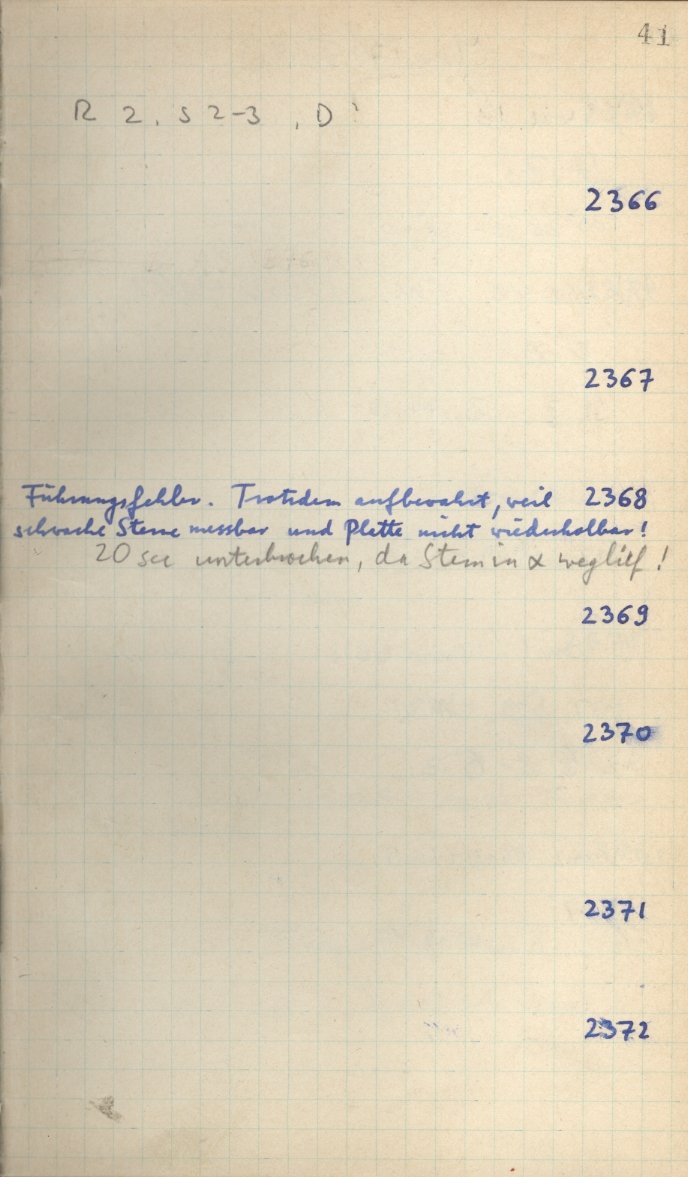 41
R 2, S 2-3, D?
2366
2367
Führungsfehler. Trotzdem aufbewahrt, weil 2368
schwache Sterne messbar und Platte nicht wiederholbar!
20 sec unterbrochen, da Stern in α weglief!
2369
2370
2371
2372